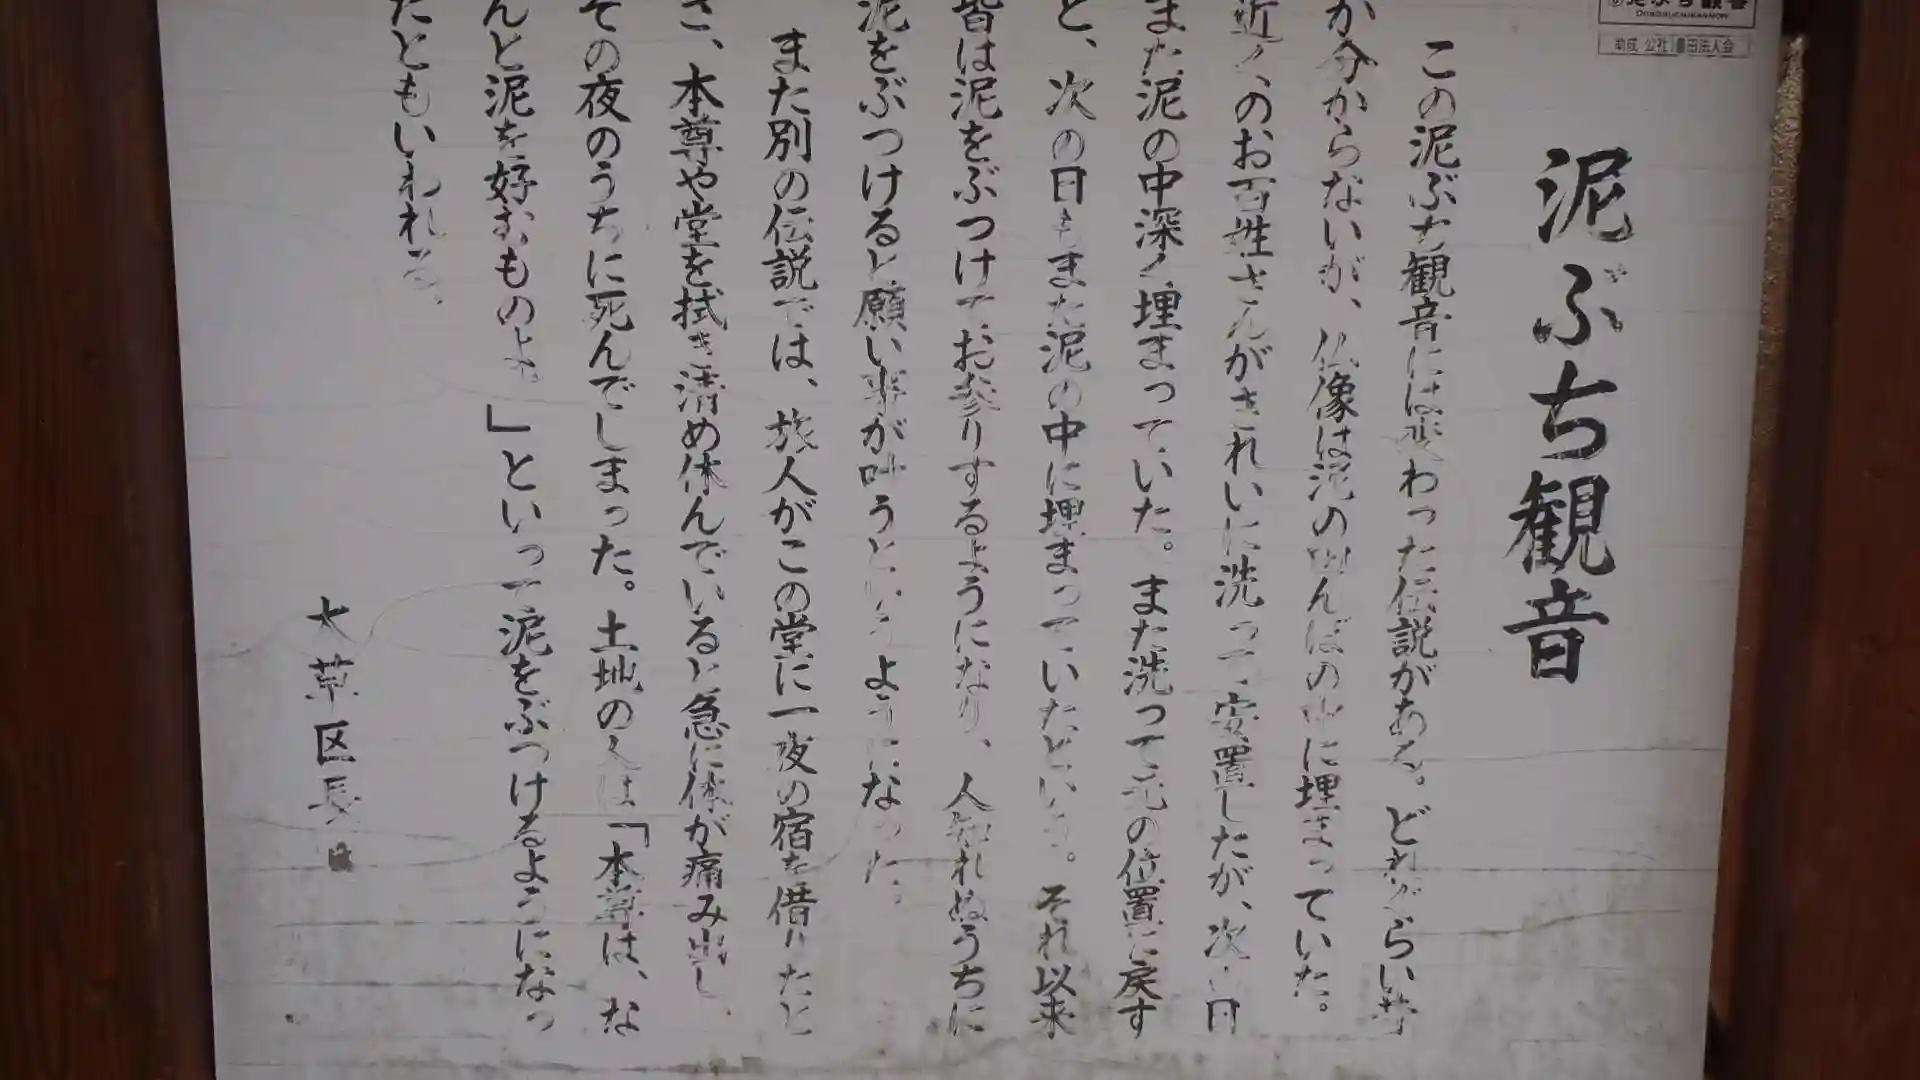 泥ぶち観音
助成 公社 豊田法人会
この泥ぶち観音には変わった伝説がある。どれぐらい昔
か分からないが、仏像は泥の田んぼの中に埋まっていた。
近くのお百姓さんがきれいに洗って安置したが、次の日
また泥の中深く埋まっていた。また洗って元の位置に戻す
と、次の日もまた泥の中に埋まっていたという。それ以来
皆は泥をぶつけてお参りするようになり、人知れぬうちに
泥をぶつけると願い事が叶うというようになった。
また別の伝説では、旅人がこの堂に一夜の宿を借りたと
き、本尊や堂を拭き清め休んでいると急に体が痛み出し、
その夜のうちに死んでしまった。土地の人は「本尊は、な
んと泥を好むものよ。」といって泥をぶつけるようになっ
たともいわれる。
大草区長